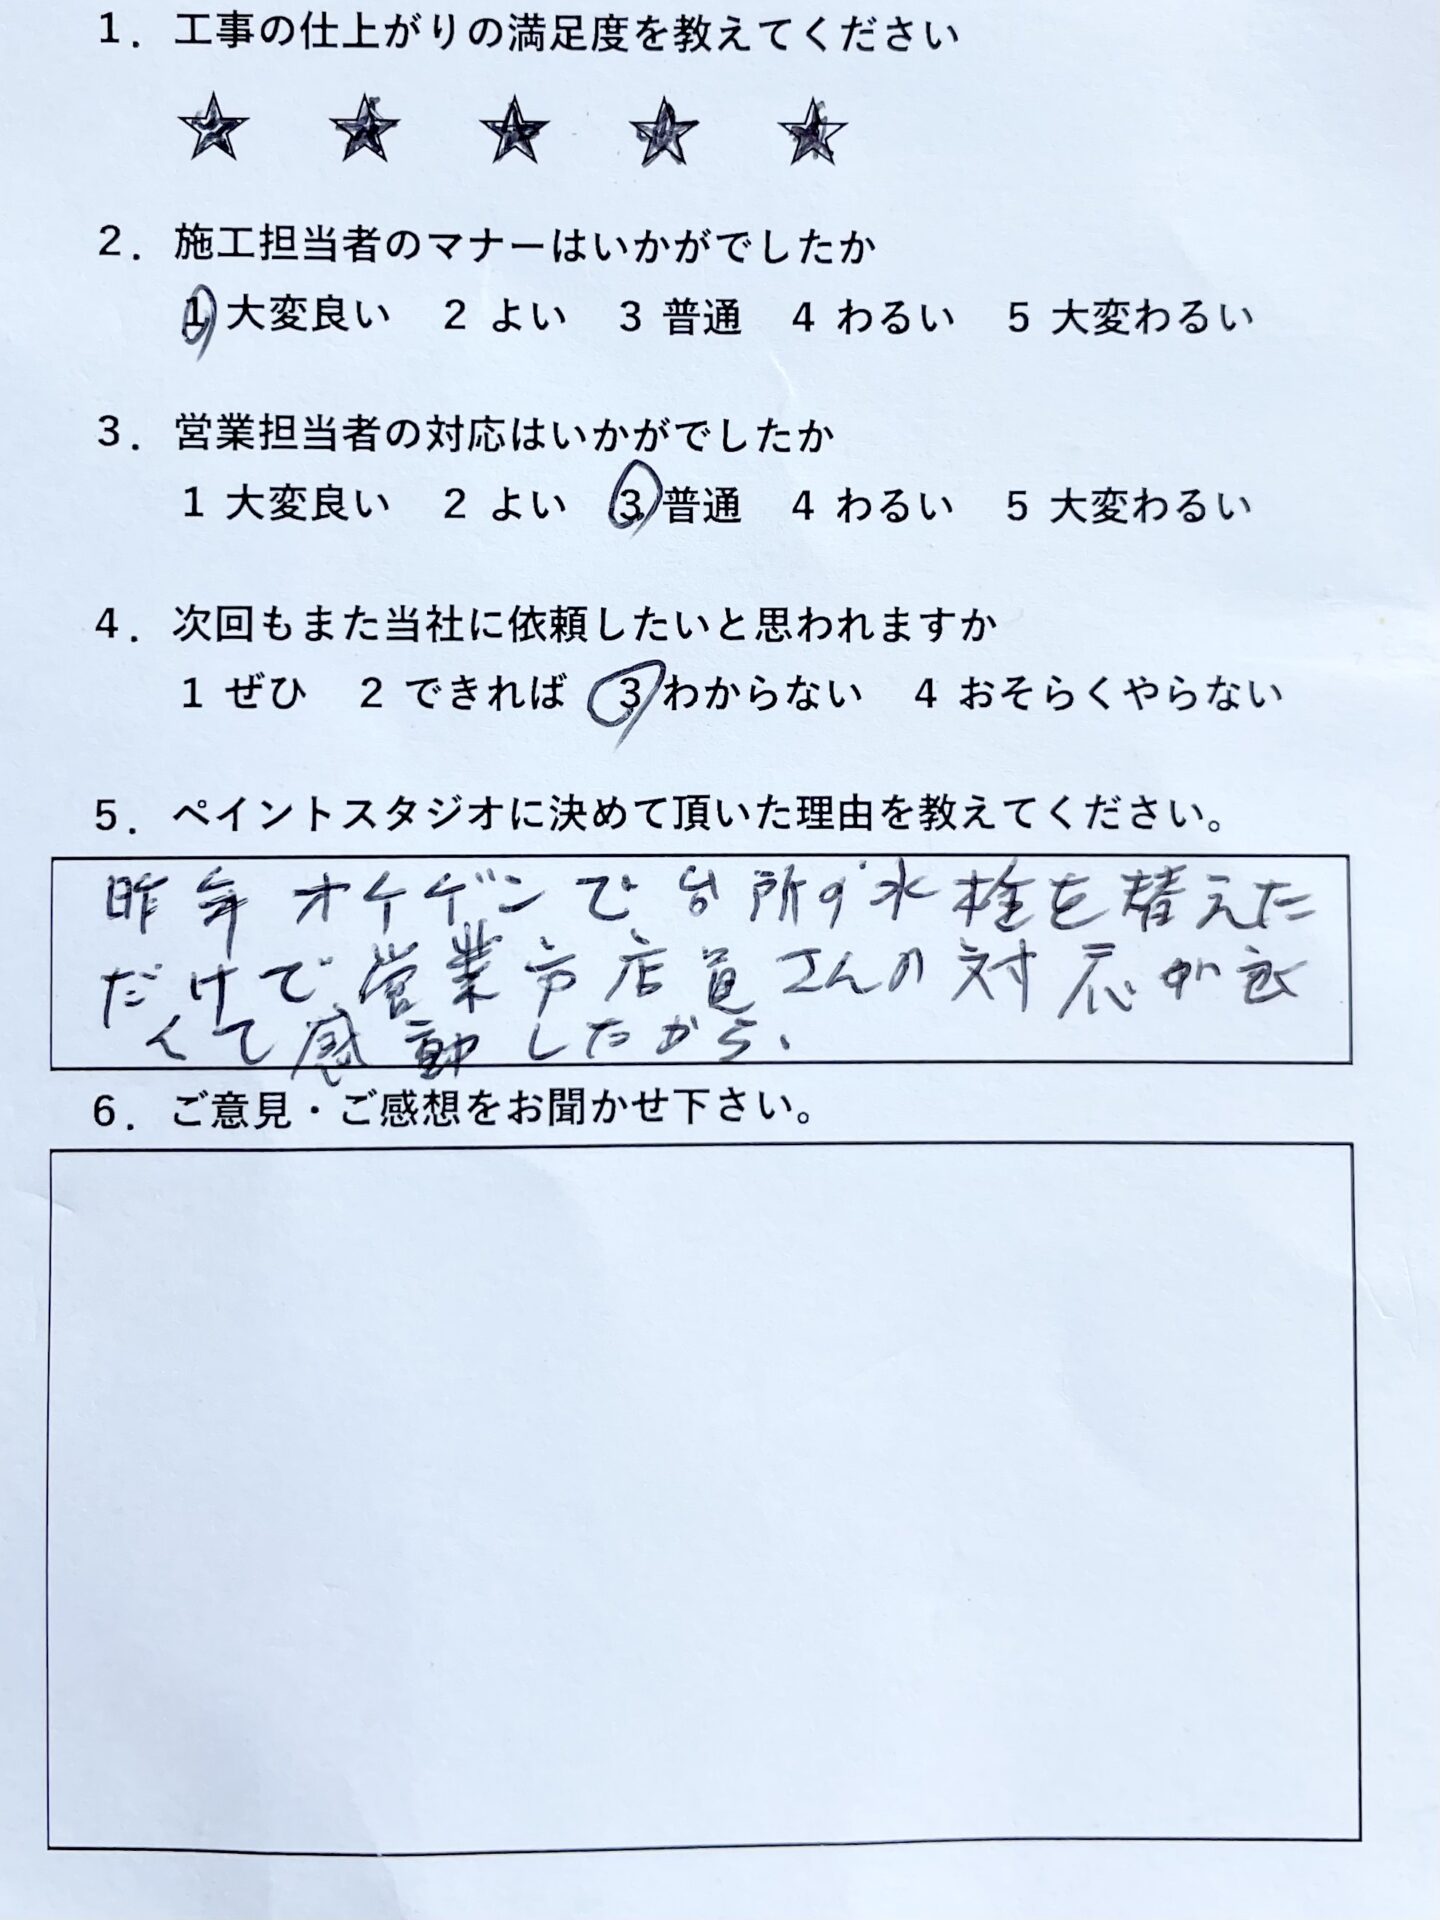 1. 工事の仕上がりの満足度を教えてください
2. 施工担当者のマナーはいかがでしたか
1 大変良い 2 よい 3 普通 4 わるい 5 大変わるい
3. 営業担当者の対応はいかがでしたか
1 大変良い 2 よい 3 普通 4 わるい 5 大変わるい
4. 次回もまた当社に依頼したいと思われますか
1 ぜひ 2 できれば 3 わからない 4 おそらくやらない
5. ペイントスタジオに決めて頂いた理由を教えてください。
昨年オケゲンで台所の水栓を替えた
だけで営業 店員さんの対応が良
くて感動したから、
6. ご意見・ご感想をお聞かせ下さい。